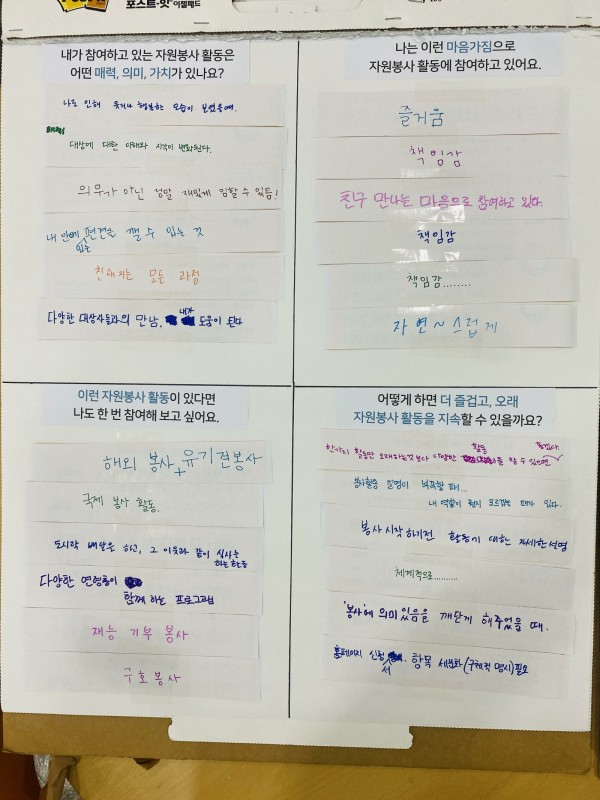 포스트-잇 이젤패드
내가 참여하고 있는 자원봉사 활동은
어떤 매력, 의미, 가치가 있나요?
나로 인해 웃거나 행복한 모습이 보였을때.
대상에 대한 이해와 시각이 변화된다.
의무가 아닌 정말 재밌게 임할 수 있음!
내 안에 있는 편견을 깰 수 있는 것
친해지는 모든 과정
다양한 대상자들과의 만남. 내가 도움이 된다
나는 이런 마음가짐으로
자원봉사 활동에 참여하고 있어요.
즐거움
책임감
친구 만나는 마음으로 참여하고 있다.
책임감
책임감........
자연~스럽게
이런 자원봉사 활동이 있다면
나도 한 번 참여해 보고 싶어요.
해외 봉사 + 유기견봉사
국제 봉사 활동.
도시락 배달은 하고, 그 이웃과 같이 식사는
하는 활동
다양한 연령층이
함께 하는 프로그램
재능 기부 봉사
구호 봉사
어떻게 하면 더 즐겁고, 오래
자원봉사 활동을 지속할 수 있을까요?
한가지 활동만 오래하는것 보다 다양한 활동을 할 수 있으면 좋겠다.
봉사활동 설명이 부족할 때...
내 역할이 뭔지 모르겠는 때가 있다.
봉사 시작 하기전 활동에 대한 자세한 설명
체계적으로..........
'봉사'에 의미 있음을 깨닫게 해주었을 때.
홈페이지 신청서 항목 세분화(구체적 명시)필요